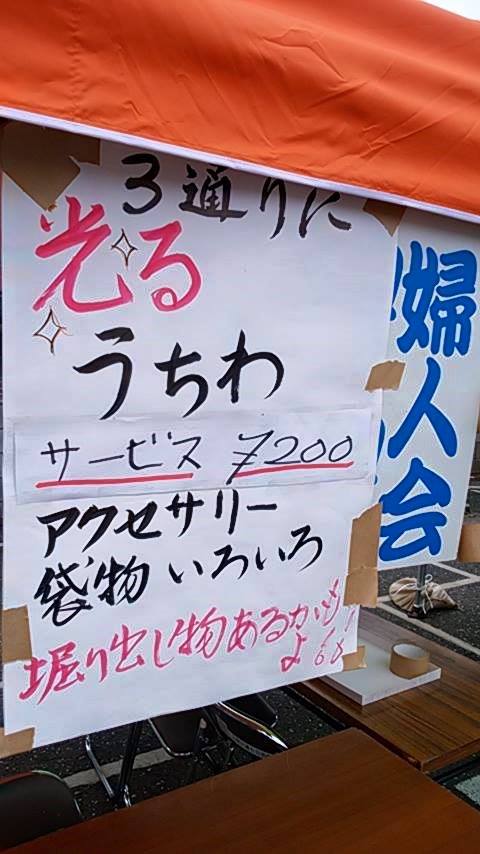 3通りに
光る
うちわ
サービス ¥200
アクセサリー
袋物 いろいろ
堀り出し物あるかも
よ
婦人会